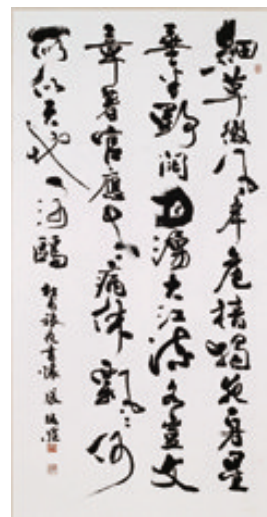 細草微風岸危檣獨夜舟星
垂平野闊月湧大江流名豈文
章著官應老病休飄飄何
所似天地一沙鷗
杜甫旅夜書懷